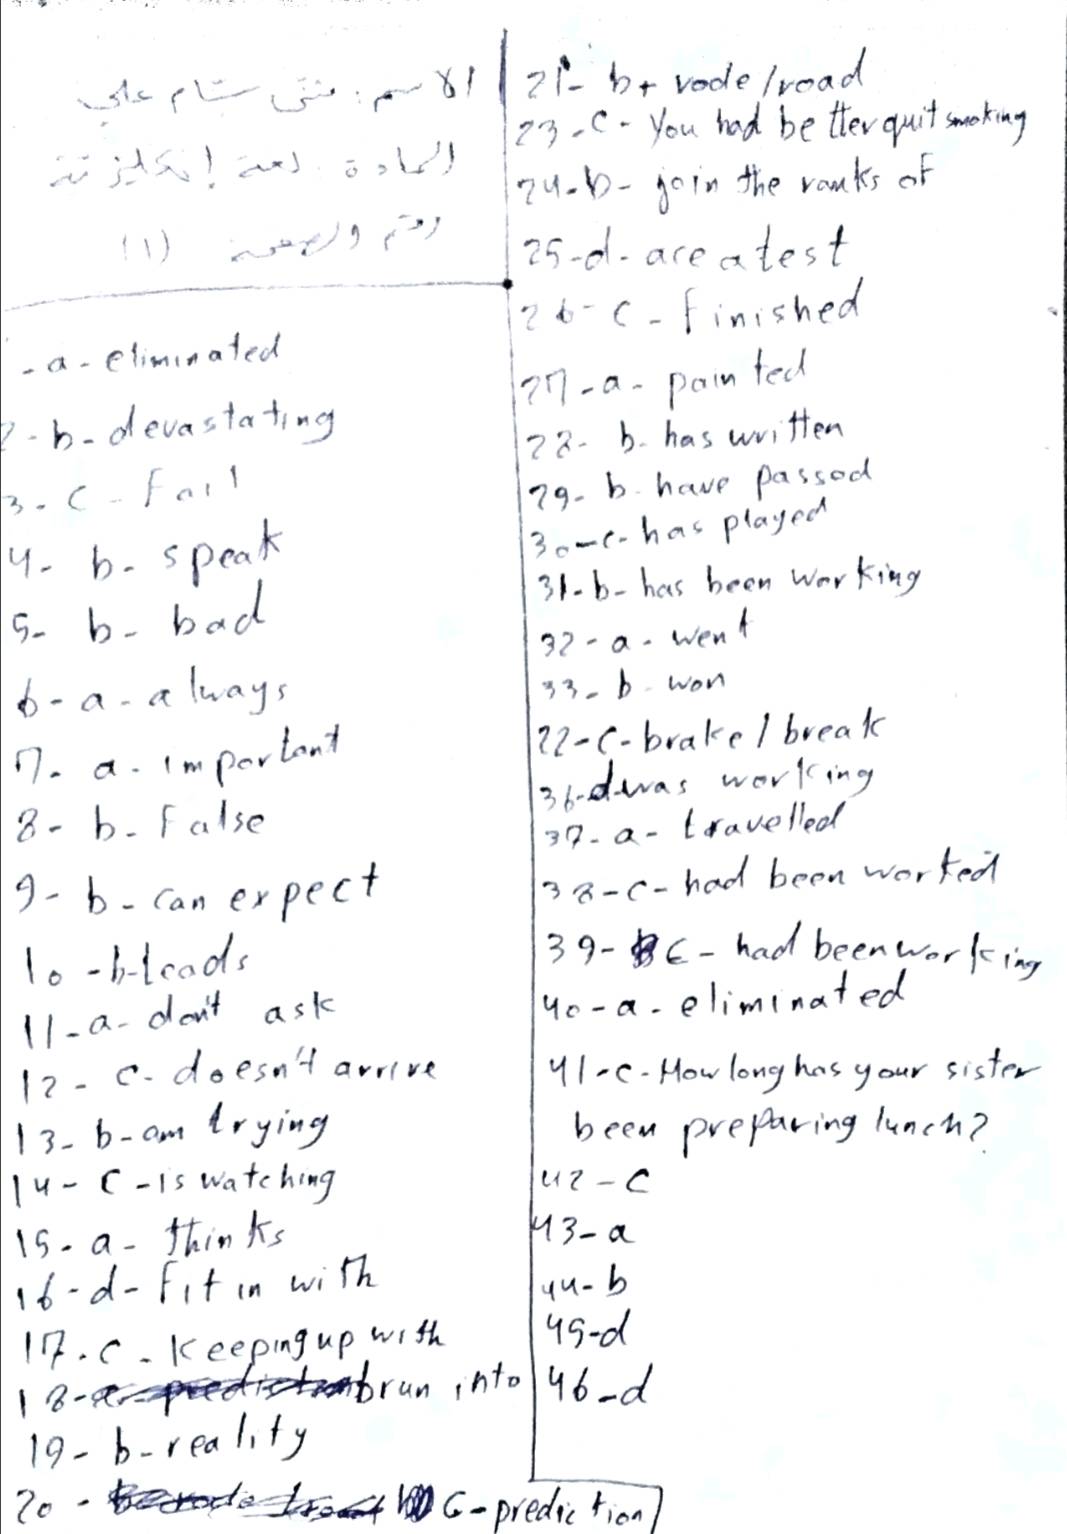 الاسم: منتى ستام علي
المادة: لغة إنكليزية
رقم الصفحة (١)
- a - eliminated
2 - b - devastating
3 - C - Fail
4 - b - speak
5 - b - bad
6 - a - always
7 - a - important
8 - b - False
9 - b - can expect
10 - b - leads
11 - a - don't ask
12 - C - doesn't arrive
13 - b - am trying
14 - C - is watching
15 - a - thinks
16 - d - fit in with
17 - C - keeping up with
18 - b run into
19 - b - reality
20 - C - prediction
21 - b + rode / road
23 - C - You had better quit smoking
24 - b - join the ranks of
25 - d - are a test
26 - C - finished
27 - a - painted
28 - b - has written
29 - b - have passed
30 - C - has played
31 - b - has been working
32 - a - went
33 - b - won
22 - C - brake / break
36 - d - was working
37 - a - travelled
38 - C - had been worked
39 - C - had been working
40 - a - eliminated
41 - C - How long has your sister
been preparing lunch?
42 - C
43 - a
44 - b
45 - d
46 - d